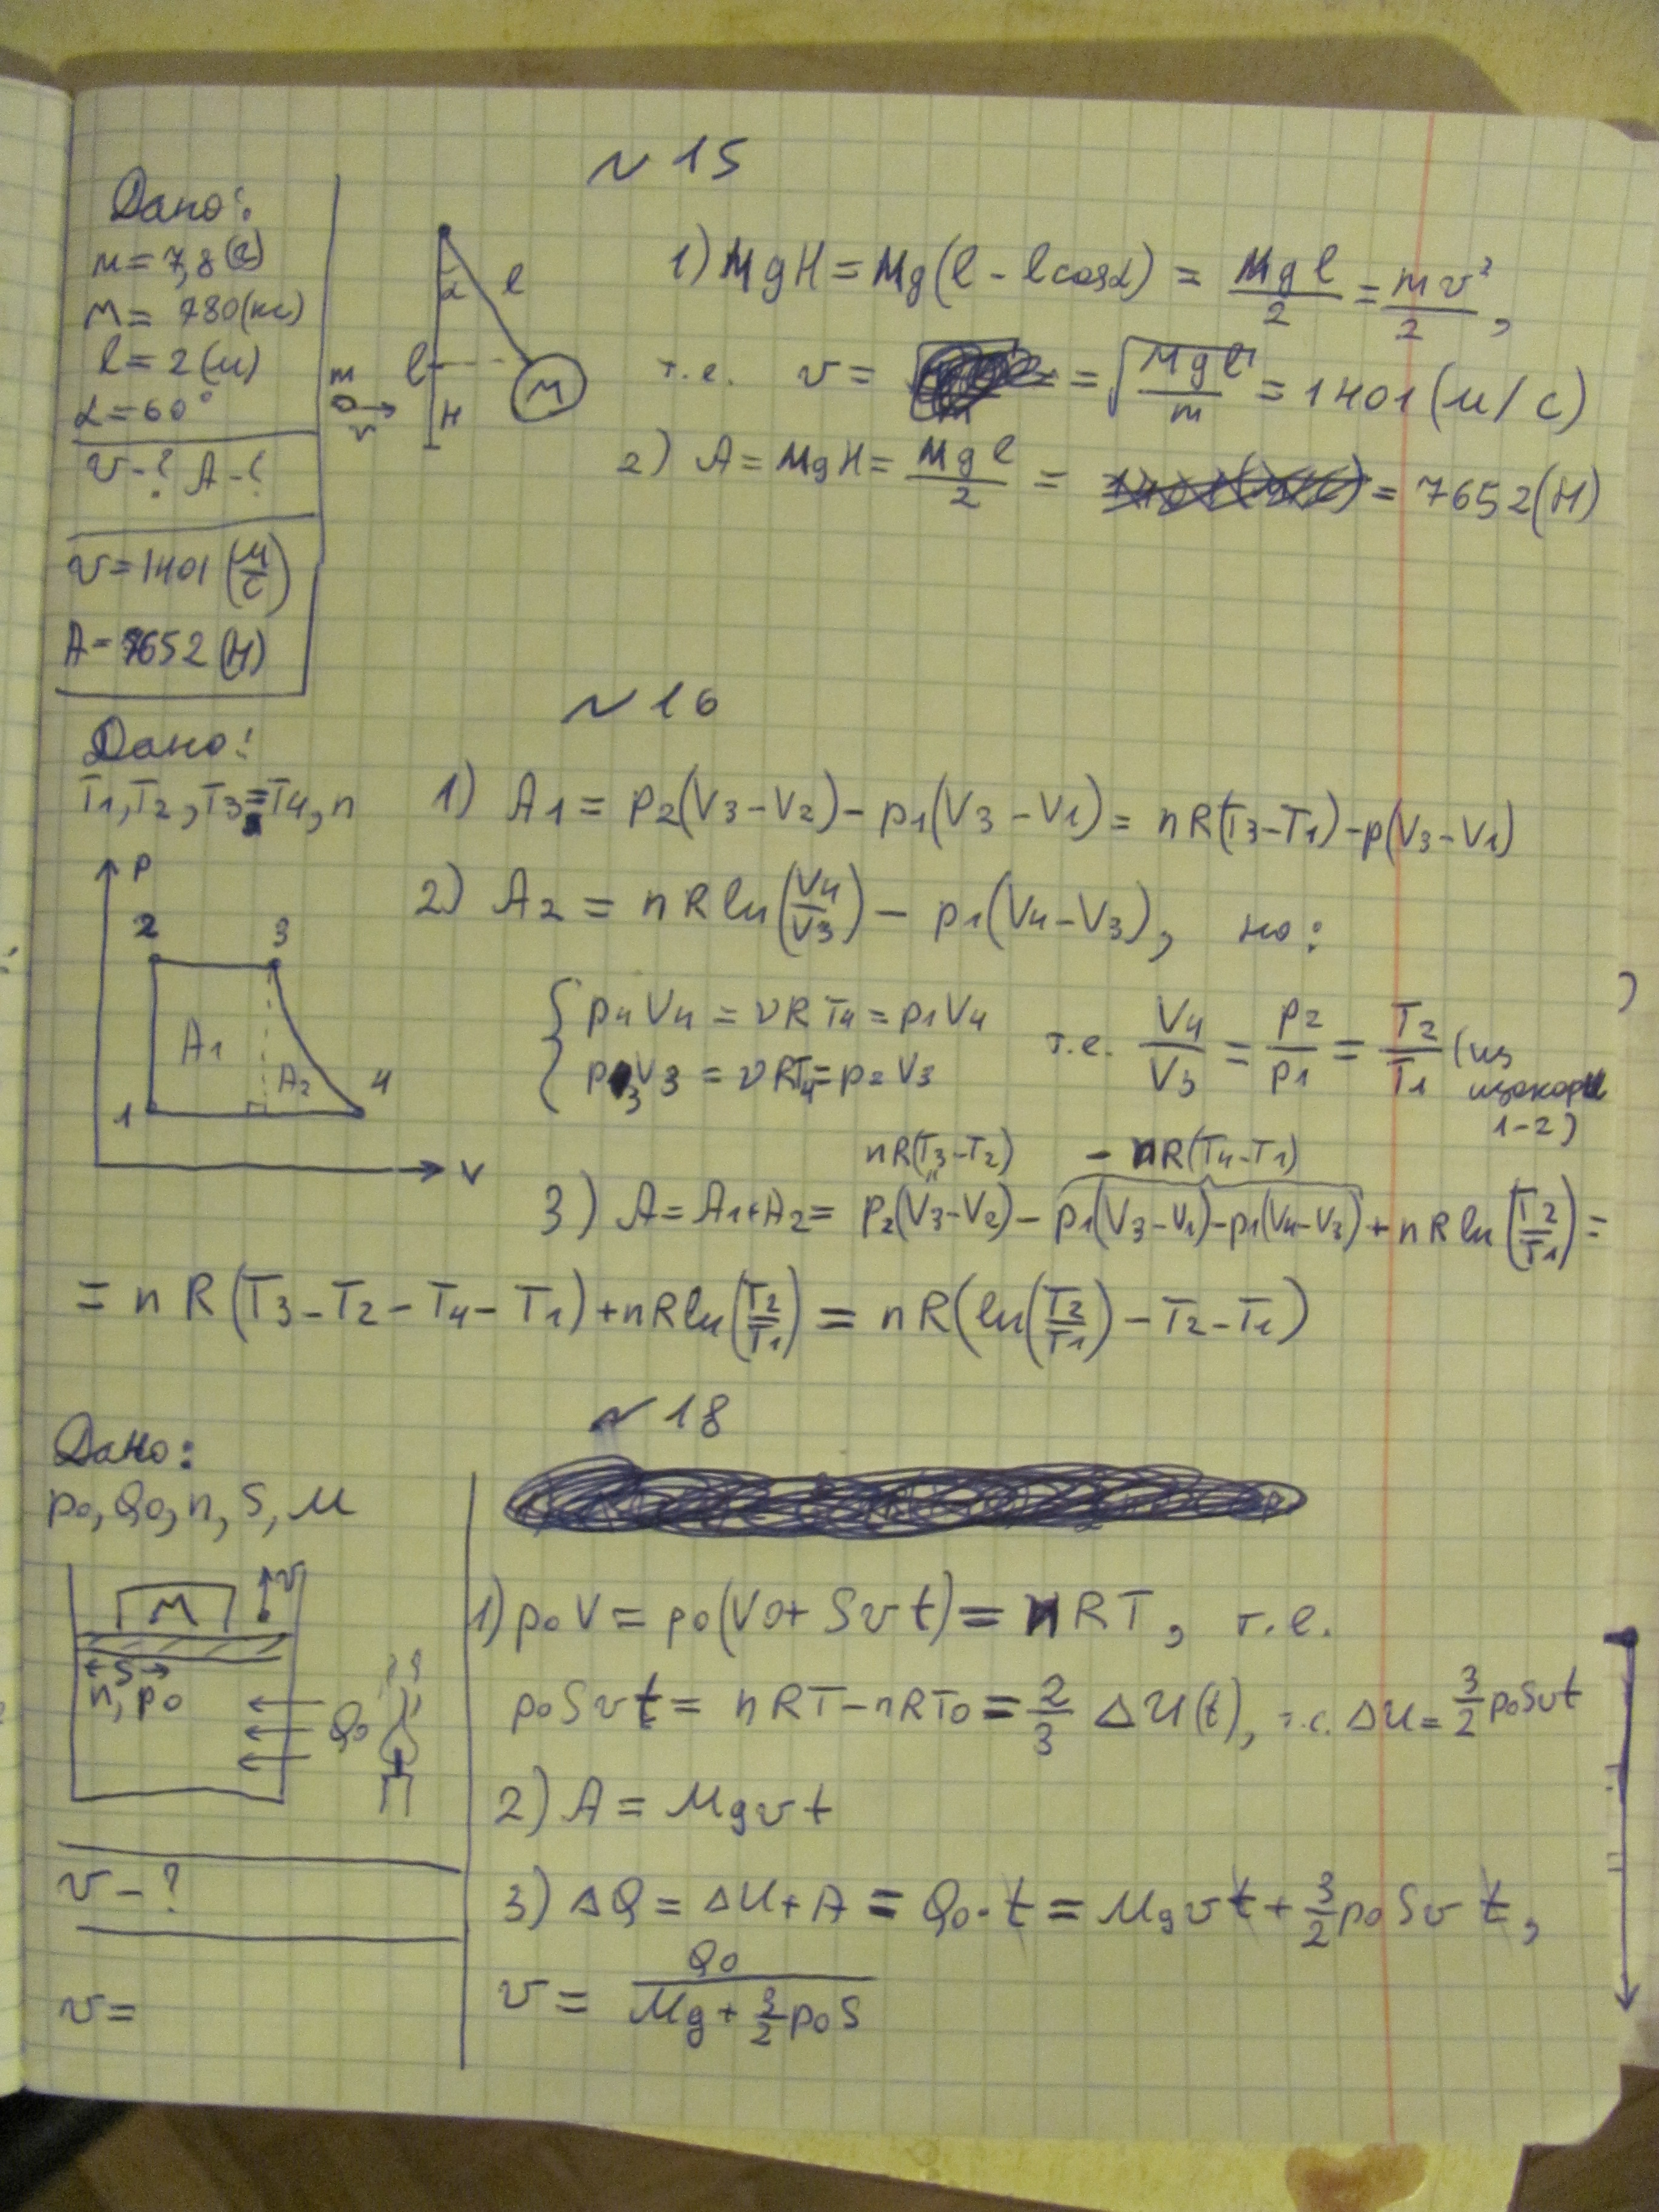 N 15
Дано:
m = 7,8 (г)
M = 780 (кг)
l = 2 (м)
α = 60°
v - ? A - ?
v = 1401 (м/с)
A = 7652 (H)
α l
l M
m v H
1) MgH = Mg(l - l cosα) = Mgl/2 = mv²/2,
т.е. v = = √(Mgl/m) = 1401 (м/с)
2) A = MgH = Mgl/2 = = 7652 (H)
N 16
Дано:
T1, T2, T3 = T4, n
P
2 3
A1 A2
1 4
V
1) A1 = P2(V3 - V2) - p1(V3 - V1) = nR(T3 - T1) - p(V3 - V1)
2) A2 = nR ln(V4/V3) - p1(V4 - V3), но:
{ p4V4 = νRT4 = p1V4
p3V3 = νRT4 = p2V3
т.е. V4/V3 = P2/P1 = T2/T1 (из изохоры 1-2)
nR(T3 - T2) - nR(T4 - T1)
3) A = A1 + A2 = P2(V3 - V2) - p1(V3 - V1) - p1(V4 - V3) + nR ln(T2/T1) =
= nR(T3 - T2 - T4 - T1) + nR ln(T2/T1) = nR(ln(T2/T1) - T2 - T1)
N 18
Дано:
p0, Q0, n, S, M
M v
S
n, p0
Q0
v - ?
v =
1) p0V = p0(V0 + Svt) = nRT, т.е.
p0Svt = nRT - nRT0 = 2/3 ΔU(t), т.е. ΔU = 3/2 p0Svt
2) A = Mgvt
3) ΔQ = ΔU + A = Q0·t = Mgvt + 3/2 p0Svt,
v = Q0/(Mg + 3/2 p0S)